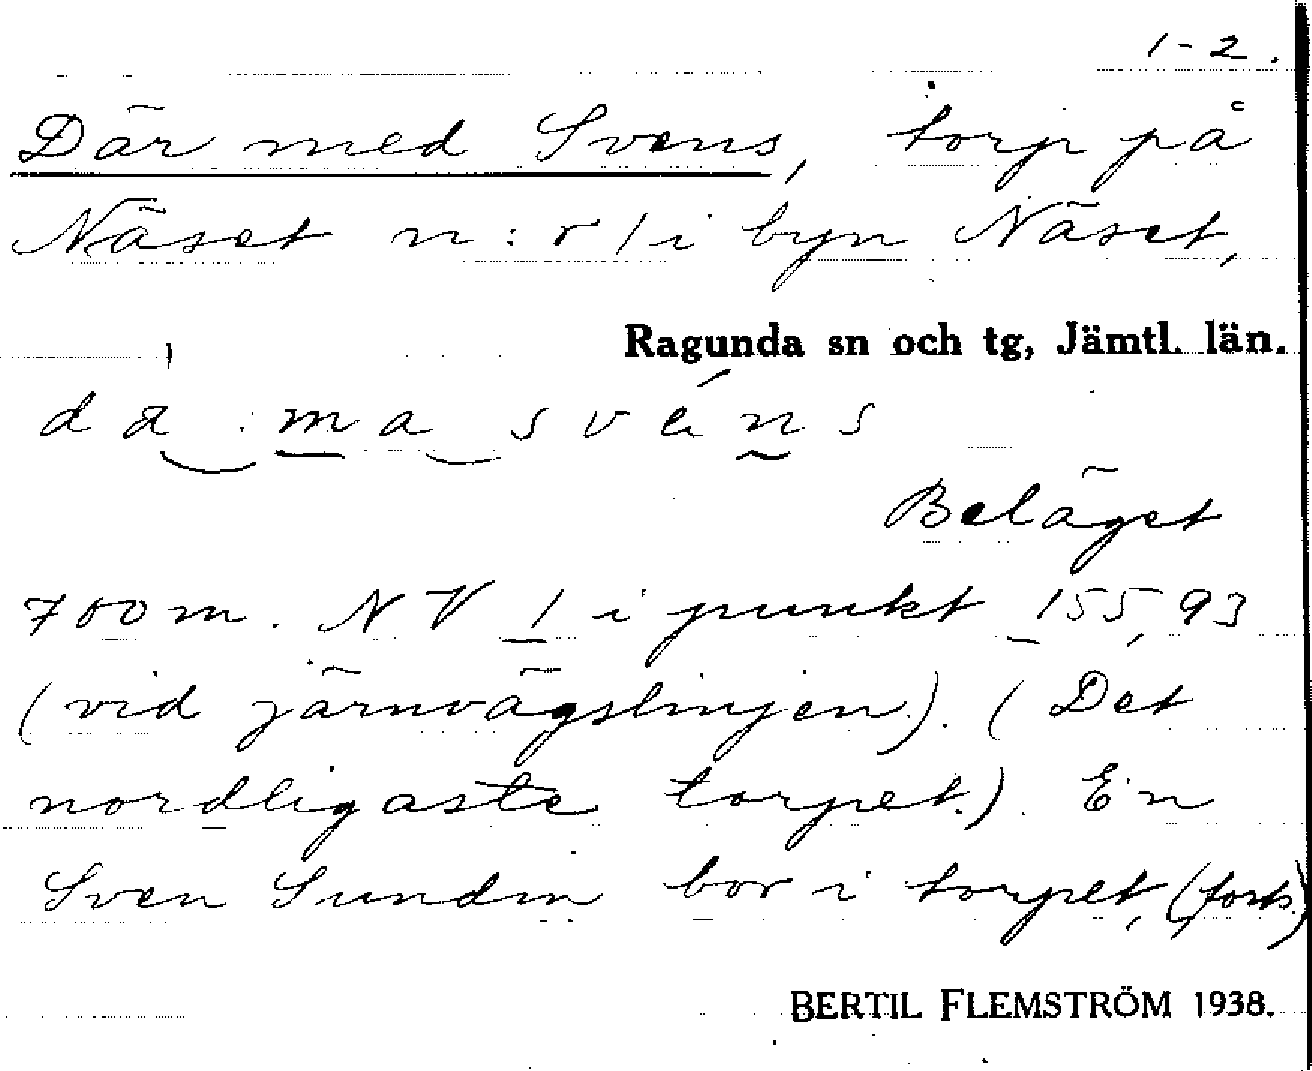 1-2.
Där med Svens, torp på
Näset n:r 1 i byn Näset,
Ragunda sn och tg, Jämtl. län.
dä ma svéns
Beläget
700 m. NV 1 i punkt 155,93
(vid järnvägslinjen). (Det
nordligaste torpet.) En
Sven Sundin bor i torpet, (forts.)
BERTIL FLEMSTRÖM 1938.